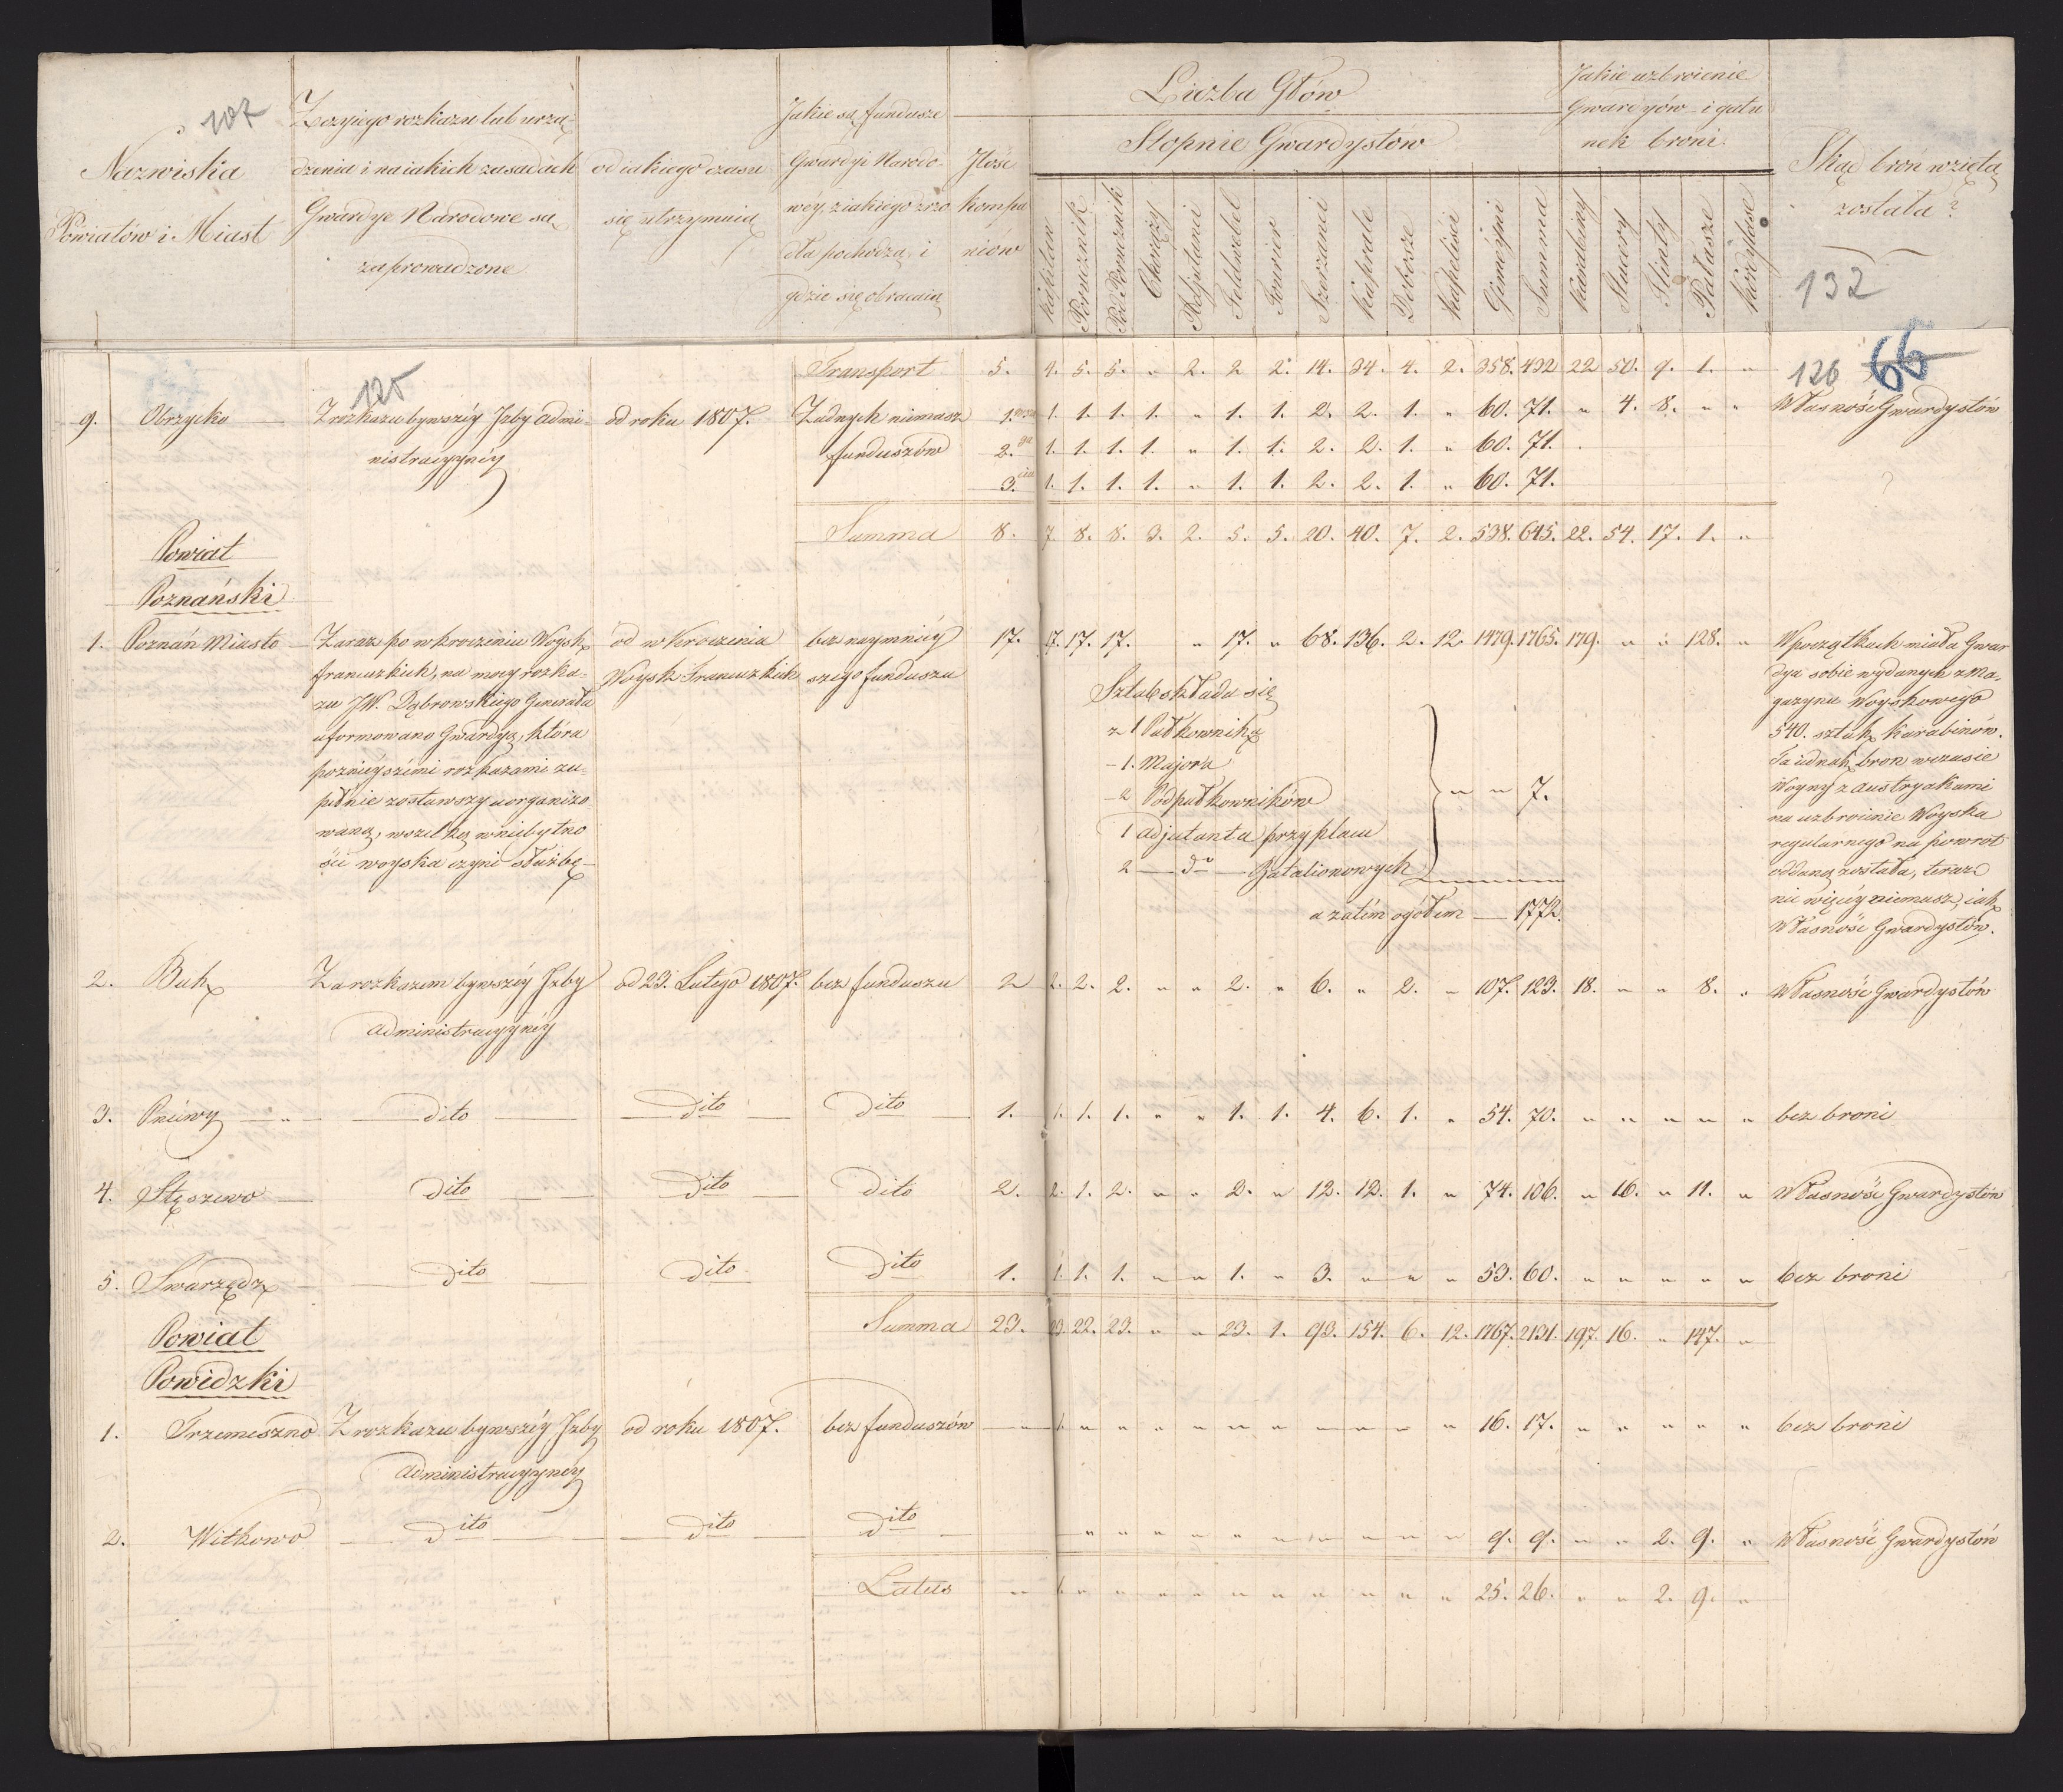 107
Nazwiska
Powiatów i Miast
Z czyiego rozkazu lub urzą-
dzenia i na iakich zasadach
Gwardye Narodowe są
zaprowadzone
od iakiego czasu
się utrzymuią
Jakie są fundusze
Gwardyi Narodo-
wéy, z iakiego zrzo
dła pochodzą, i
gdzie się obracaią
Jlość
kompa
niów
Liczba Głów
Stopnie Gwardystów
Kapitan
Porucznik
PodPorucznik
Chorąży
Adjutanci
Feldwebel
Fourier
Szerżanci
Kaprale
Dobosze
Kapeliści
Gimeyni
Summa
Jakie uzbroienie
Gwardyów i gatu
nek broni
Karabiny
Stucery
Flinty
Pałasze
Kordylase
Skąd broń wzięta
została?
132
Transport 5. 4. 5. 5. " 2. 2 2. 14. 34. 4. 2. 358. 432 22 50. 9. 1. "
126 66
125
9. Obrzycko Z rozkazu bywszéy Jzby admi- od roku 1807. Żadnych niemasz 1.sza 1. 1. 1. 1. " 1. 1. 2. 2. 1. " 60. 71. " 4. 8. " " Własność Gwardystów
nistracyynéy funduszów 2.ga 1. 1. 1. 1. " 1. 1. 2. 2. 1. " 60. 71.
3.cia 1. 1. 1. 1. " 1. 1. 2. 2. 1. " 60. 71.
Summa 8. 7. 8. 8. 3. 2. 5. 5. 20. 40. 7. 2. 538. 645. 22. 54. 17. 1. "
Powiat
Poznański
1. Poznań Miasto Zaraz po wkroczeniu Woysk od wkroczenia bez naymniéy 17. 17. 17. 17. " 17. " 68. 136. 2. 12 1479. 1765. 179. " " 128. " W początkach miała Gwar
francuzkich, na mocy rozka- Woysk Francuzkich szego funduszu
zu JW. Dąbrowskiego Generała
uformowano Gwardyą, która
poznieyszemi rozkazami zu-
pełnie zostawszy uorganizo
waną, wszelką w niebytno
ści woyska czyni służbę
Sztab składa się
z 1 Pułkownika
- 1. Majora
- 2 Podpułkowników
1 Adjutanta przy placu
2 — do — Batalionowych
" " 7.
a zatém ogółem — 1772.
dya sobie wydanych z Ma-
gazynu Woyskowego
540. sztuk karabinów.
Ta iednak broń w czasie
Woyny z Austryakami
na uzbroienie Woyska
regularnego na powrót
oddana została, teraz
nic więcéy niemasz, iak
Własność Gwardystów.
2. Buk Za rozkazem bywszéy Jzby od 23. Lutego 1807. bez funduszu 2 2. 2. 2. " " 2. " 6. " 2. " 107. 123. 18. " " 8. " Własność Gwardystów
Administracyynéy
3. Pniewy — " — dito — dito — dito 1. 1. 1. 1. " " 1. 1. 4. 6. 1. " 54. 70. " " " " " bez broni
4. Stęszewo — dito — dito — dito 2. 2. 1. 2. " " 2. " 12. 12. 1. " 74. 106. " 16. " 11. " Własność Gwardystów
5. Swarzędz — dito — dito dito 1. 1. 1. 1. " " 1. " 3. " " " 53. 60. " " " " " bez broni
Summa 23. 23. 22. 23. " " 23. 1. 93. 154. 6. 12. 1767. 2131. 197. 16. " 147. "
Powiat
Powidzki
1. Trzemeszno Z rozkazu bywszéy Jzby od roku 1807. bez funduszów — " 1. " " " " " " " " " " 16. 17. " " " " " bez broni
Administracyynéy
2. Witkowo — dito — dito — dito — " " " " " " " " " " 9. 9. " " 2. 9. " Własność Gwardystów
Latus " 1. " " " " " " " " " " 25. 26. " " 2. 9. "